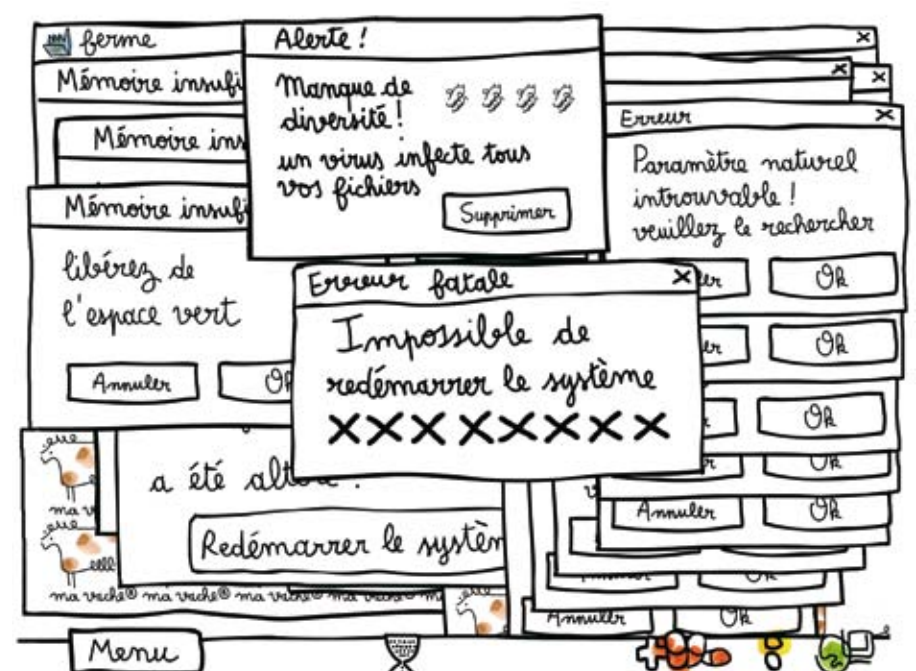 ferme
Mémoire insufi
Mémoire ins
Mémoire insufi
libérez de
l'espace vert
Annuler
Alerte !
Manque de
diversité !
un virus infecte tous
vos fichiers
Supprimer
Erreur
Paramètre naturel
introuvable !
veuillez le rechercher
ler Ok
ler Ok
Ok
Ok
Annuler Ok
Erreur fatale
Impossible de
redémarrer le système
XXX XXXXXX
a été
Redémarrer le systèm
ma vache® ma vache® ma vache® ma vache m
Annuler Ok
Menu